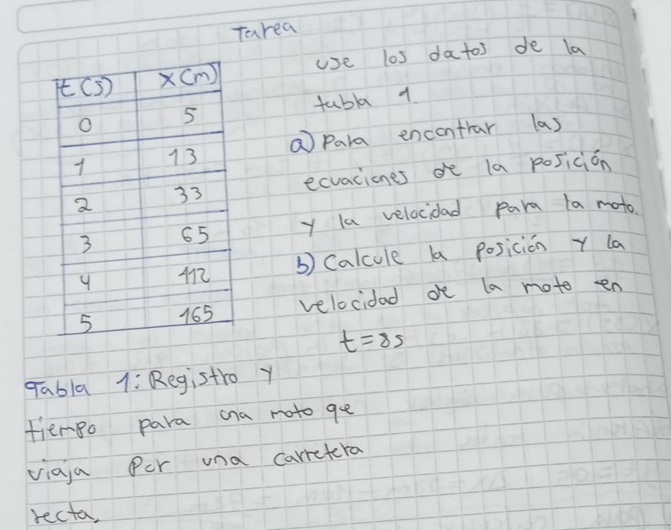 Tarea
t(s) x(m)
0 5
1 13
2 33
3 65
4 112
5 165
Tabla 1: Registro y
tiempo para una moto qe
viaja por una carretera
recta.
use los datos de la
tabla 1.
a) Para encontrar las
ecuaciones de la posición
y la velocidad para la moto.
b) Calcule la posición y la
velocidad de la moto en
t=8s